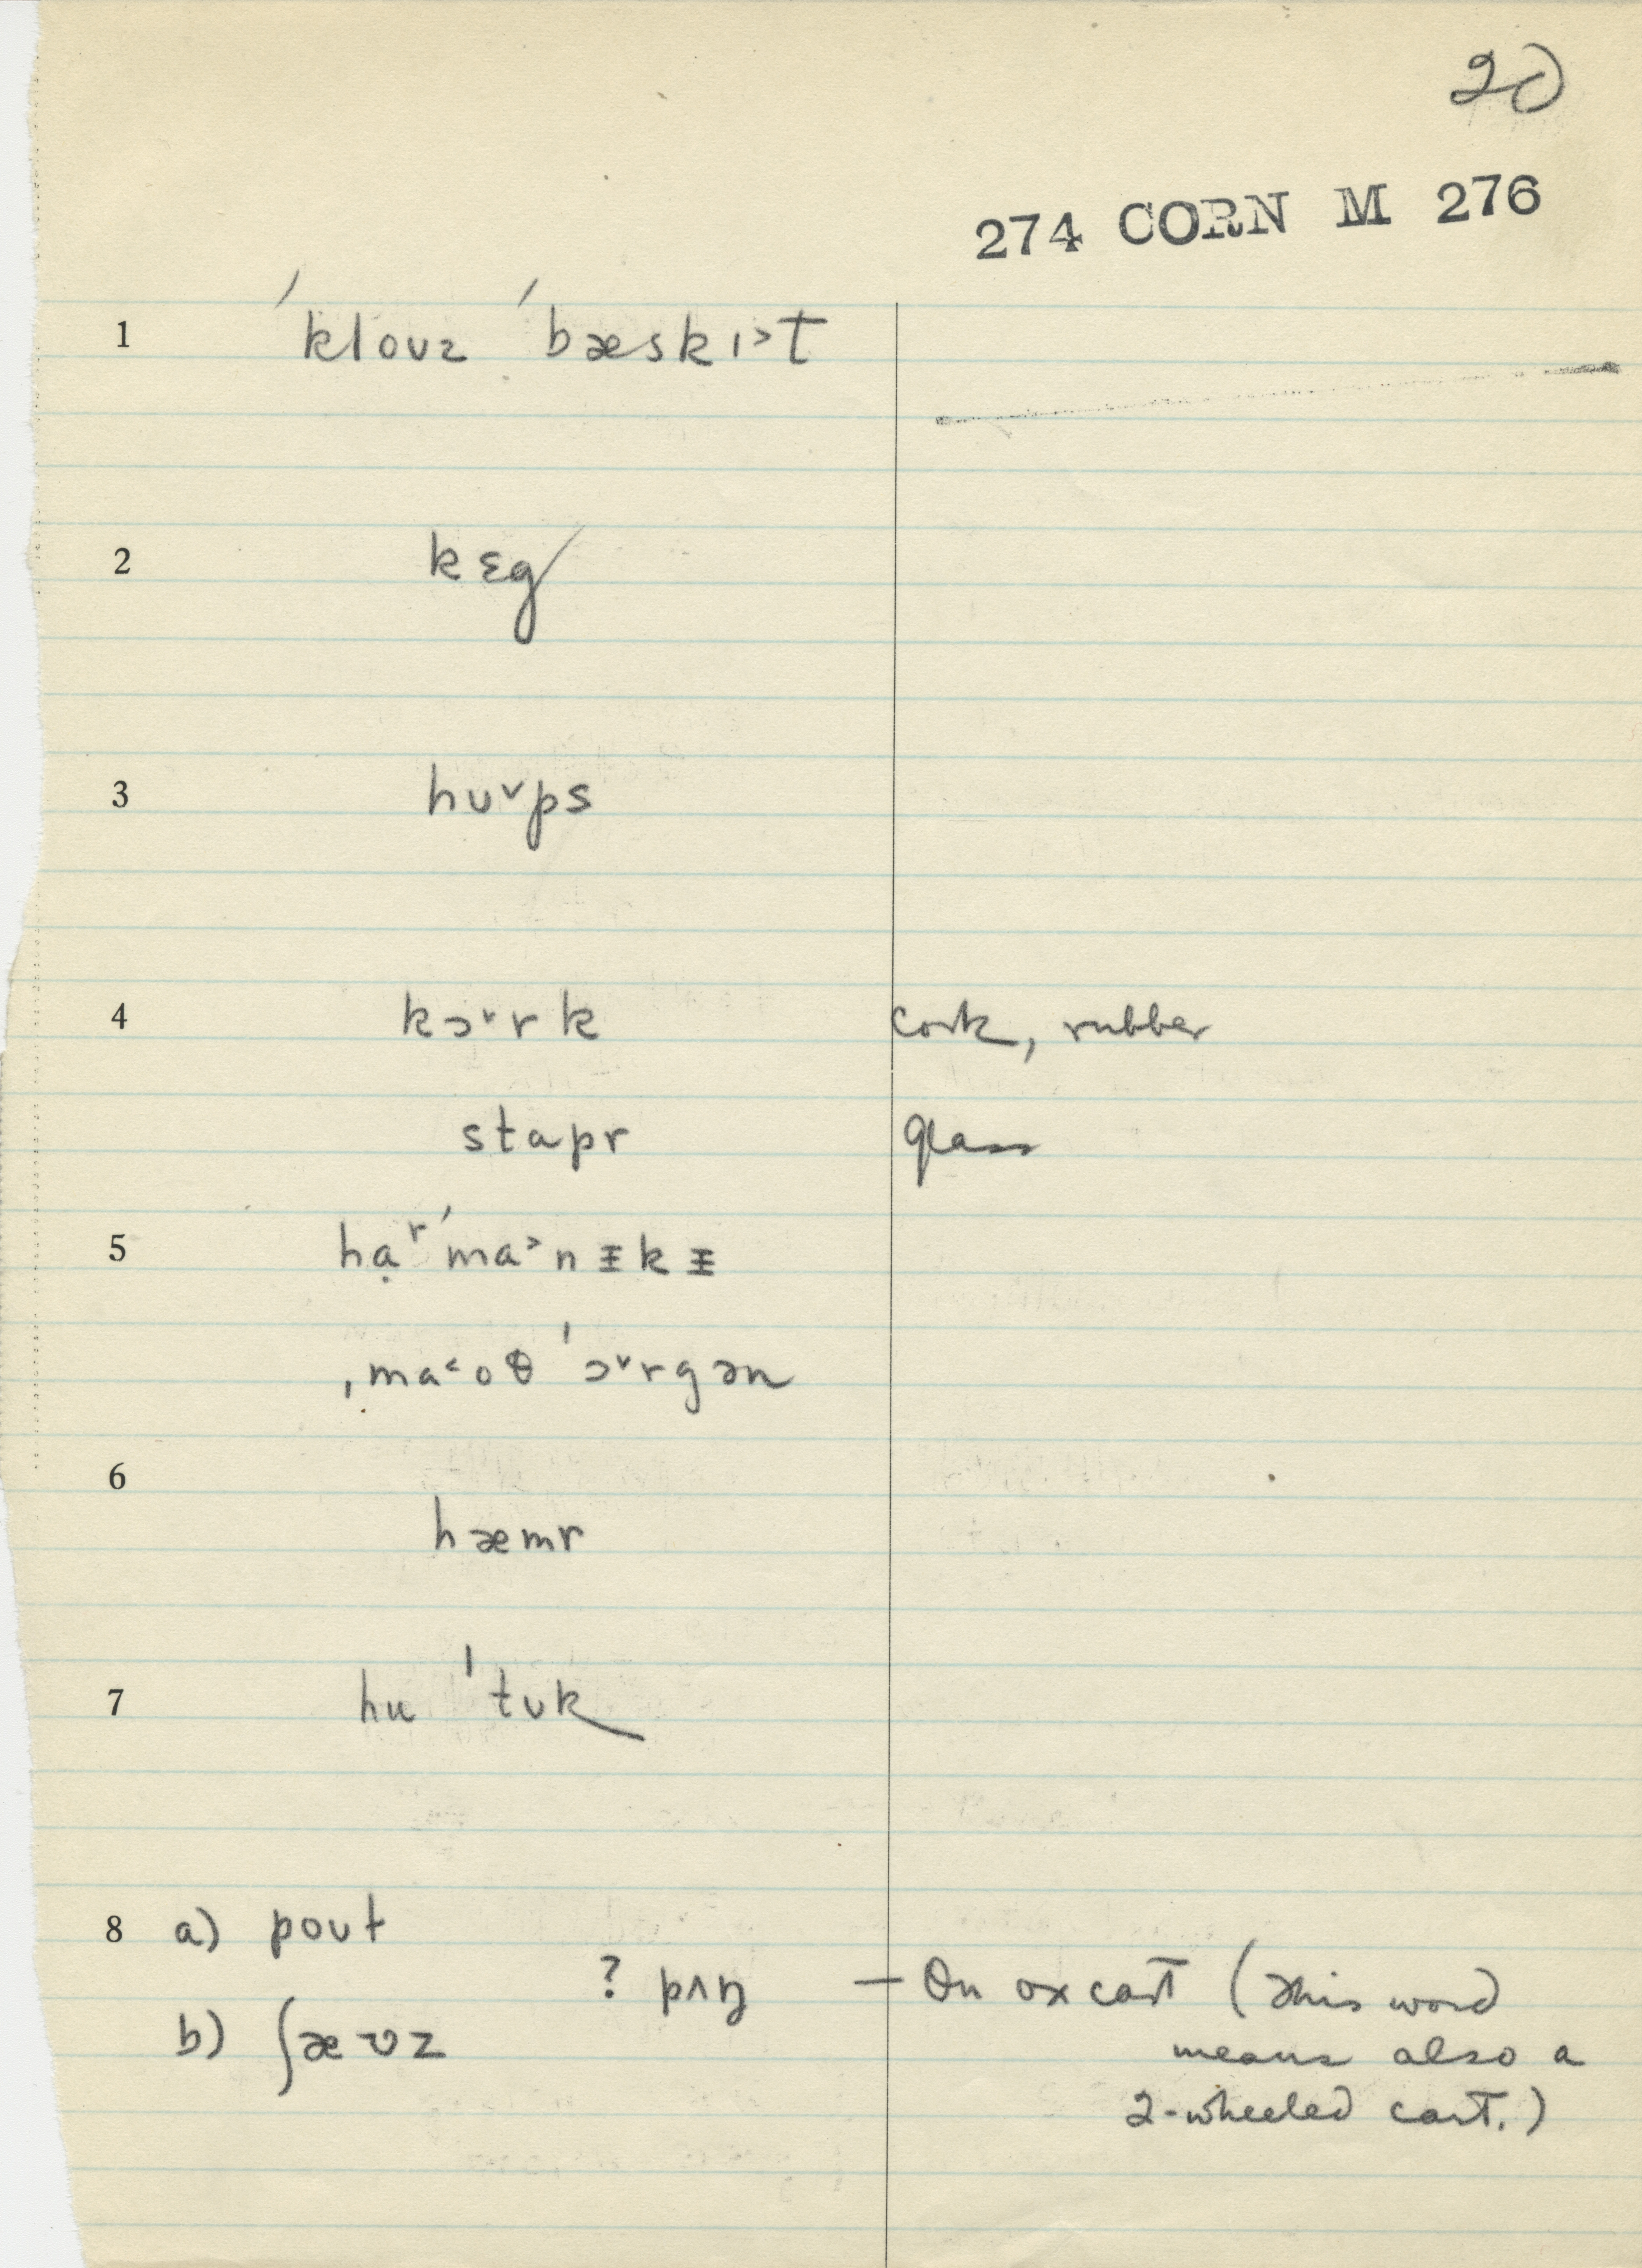 20
274 CORN M 276
1 ´ˈkloʊz ´ˈbæskɪ˃t
2 kɛg
3 hʊ˅ps
4 kɔ˅rk cork, rubber
stapr glass
5 hạʳˈma˃nɪ̵kɪ̵
ˌma˂oθ ˈɔ˅rgən
6
hæmr
7 hu ˈtʊk
8 a) poʊt
? pʌŋ — On ox cart (This word
b) ʃævz means also a
2-wheeled cart.)